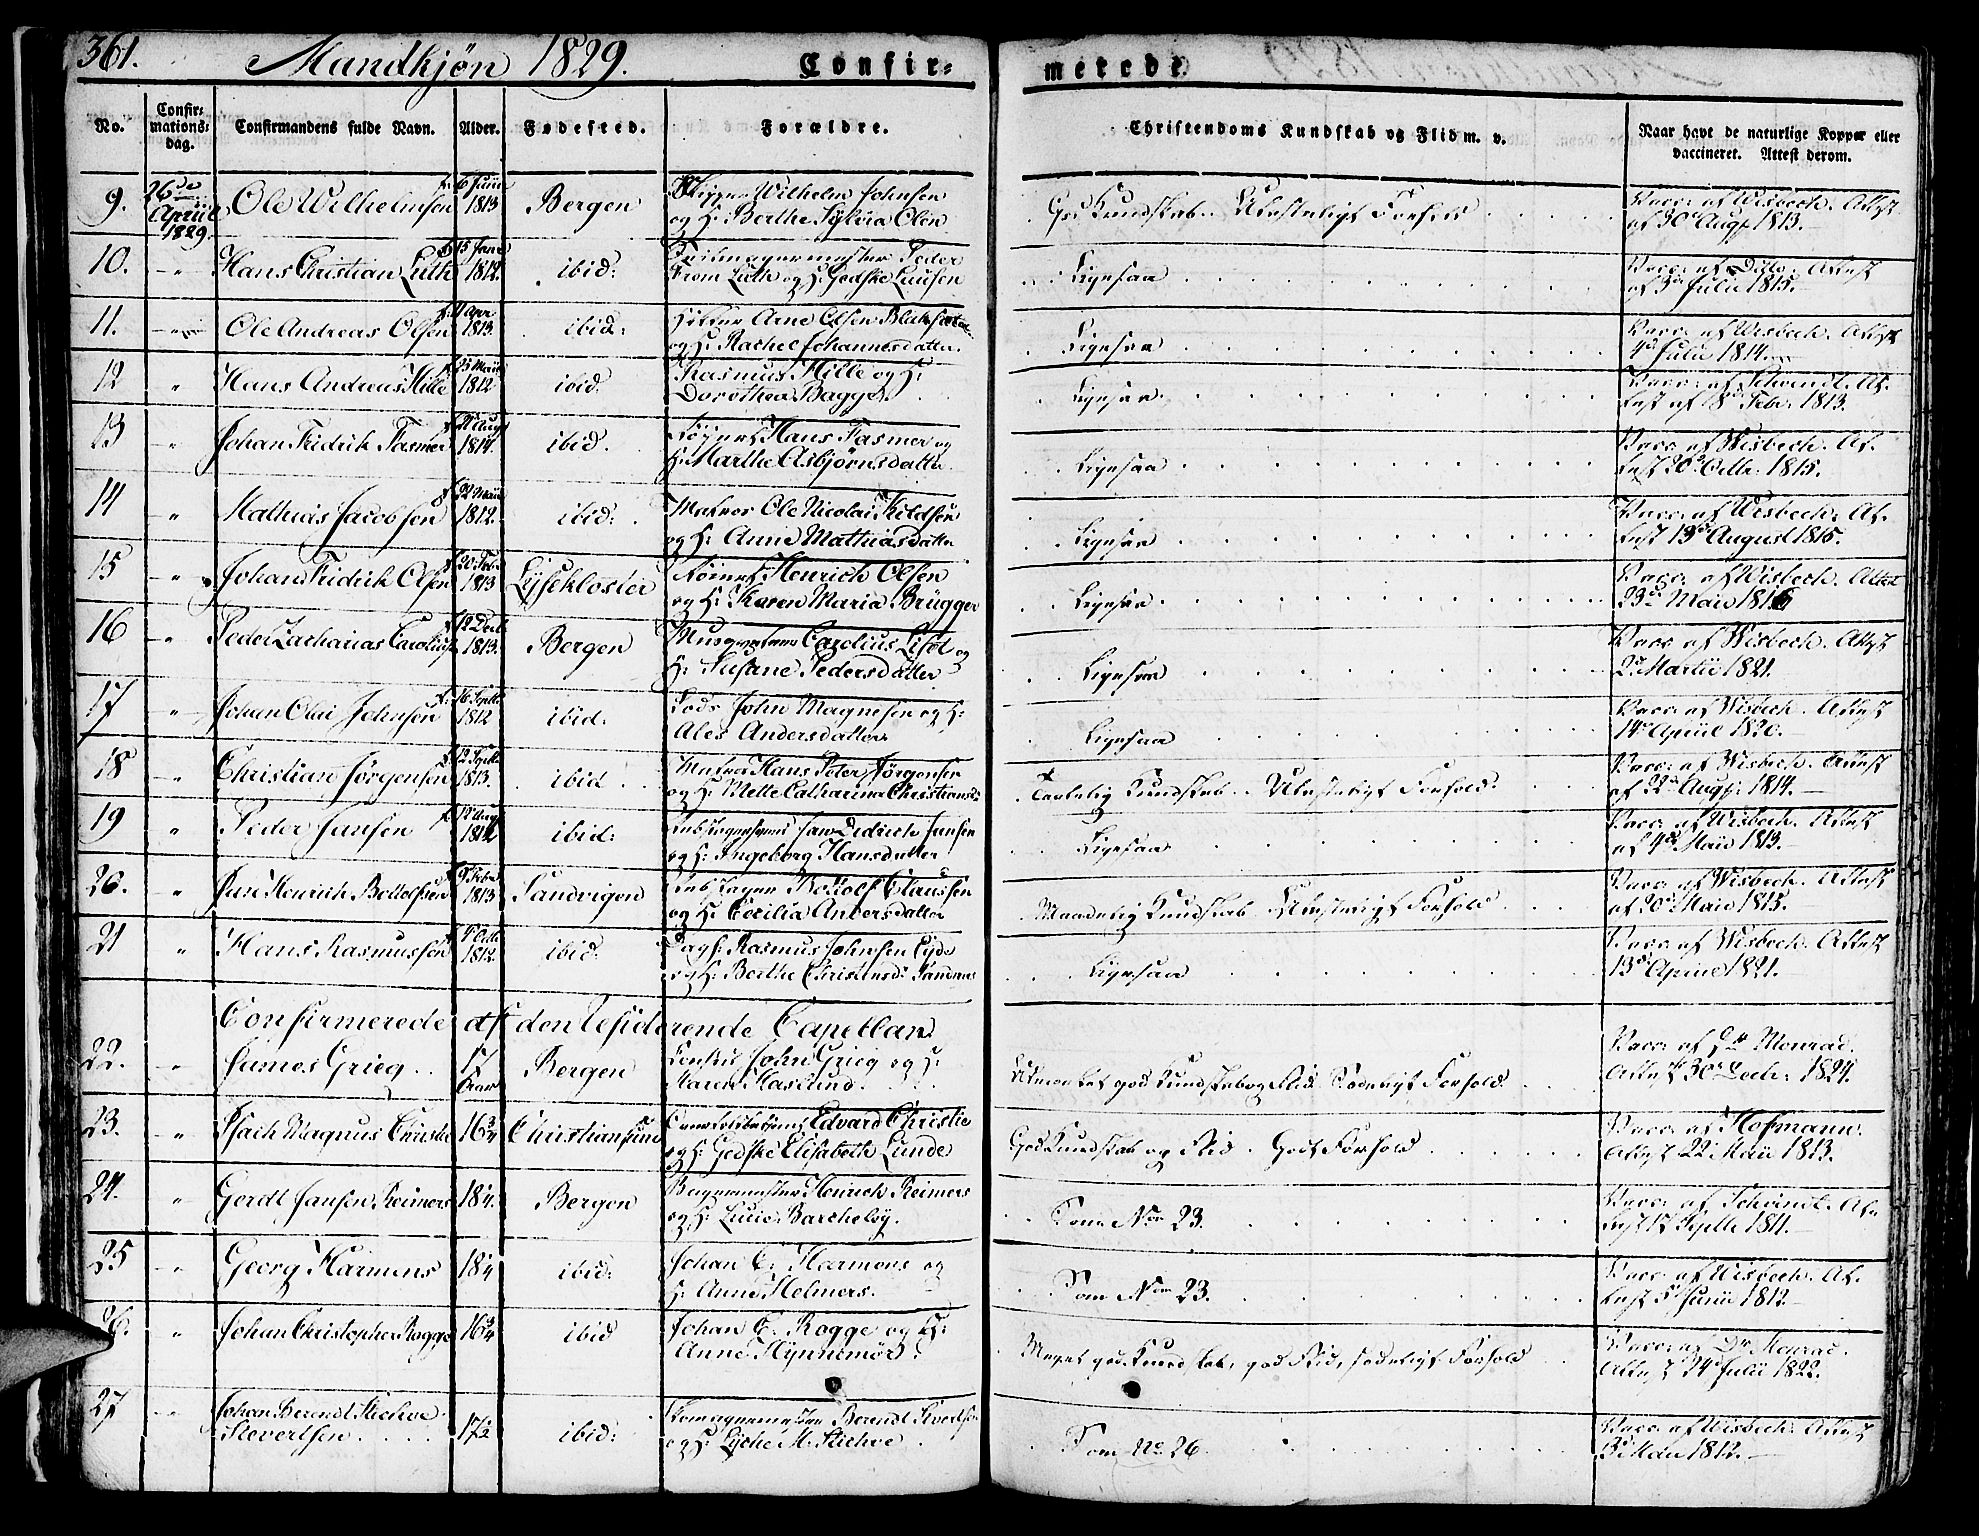 361.
Mandkjøn 1829.
Confir-
merede
No.
Confir-
mations-
dag.
Confirmandens fulde Navn.
Alder.
Fødested.
Forældre.
Christendoms Kundskab og Flid m. v.
Naar havt de naturlige Kopper eller
vaccineret. Attest derom.
9.
26de
April
1829.
Ole Wilhelmsen
f. 6 Junii
1813
Bergen
Wilhelm Johnsen
og H: Berthe Sylvia Olsen
God Kundskab. Ulasteligt Forhold
Vacc: af Wisbech. Attest
af 30 Aug. 1813.
10.
- "
Hans Christian Lüth
f. 15 Janr
1812.
ibid:
Peder
From Lüth og H: Gedske Luusen
Ligesaa
Vacc: af Ditto. Attest
af 3de Julii 1815.
11.
- "
Ole Andreas Olsen
1813.
ibid:
Arne Olsen
og H: Rachel Johannesdatter
Ligesaa
Vacc: af Wisbech. Attest
4de Julii 1814.
12
"
Hans Andreas Hille
f. 23 Maii
1812
ibid.
Rasmus Hille og H:
Dorothea Bagge
Ligesaa
Vacc: af Schvindt. At-
test af 8de Febr. 1813.
13
"
Johan Fridrik Fasmer
f. 21 Aug
1814.
ibid.
Hans Fasmer og
H: Marthe Asbjørnsdatter
Ligesaa
Vacc: af Wisbech. At-
test 20de Octb. 1815.
14
"
Mathias Jacobsen
f. 22 Maii
1812.
ibid:
Matros Ole Nicolai Kildsen
og H: Anne Mathiasdatter
Ligesaa
Vacc: af Wisbech. At-
test 13de August 1815.
15
- "
Johan Fridrik Olsen
f. 20 Feb.
1813
Lysekloster
Henrich Olsen
og H: Karen Maria Brügger
Ligesaa
Vacc: af Wisbech. Attest
23de Maii 1816
16
- "
Peder Zacharias Carolius
f. 12 Decb
1813.
Bergen
Carolius
og
H: Susane Pedersdatter
Ligesaa
Vacc: af Wisbech. Attest
2de Martii 1821.
17
"
Johan Olai Johnsen
f. 16 Septb
1812
ibid.
Lods John Magnesen og H:
Ales Andersdatter
Ligesaa
Vacc: af Wisbech. Attest
14de April 1820.
18
"
Christian Jørgensen
f. 12 Septb
1813.
ibid.
Matros Hans Peter Jørgensen
og H: Mette Catharina Christiansd:
Taalelig Kundskab. Ulasteligt Forhold.
Vacc: af Wisbech. Attest
af 22de Aug. 1814.
19
"
Peder Jansen
1812
ibid:
Jan Didrich Jansen
og H: Ingeborg Hansdatter
Ligesaa
Vacc: af Wisbech. Attest
af 4de Maii 1813.
20.
"
Henrik Bottolfsen
1813
Sandvigen
Bottolf Claussen
og H: Cecilia Andersdatter
Maadelig Kundskab. Ulasteligt Forhold
Vacc: af Wisbech. Attest
af 20de Maii 1815.
21
"
Hans Rasmussen
1812.
ibid.
Dags. Rasmus Johnsen Eyde
og H: Berthe
Ligesaa
Vacc: af Wisbech. Attest
13de April 1821.
Confirmerede af den residerende Capellan
22.
"
James Grieg
17
Aar
Bergen
Consul John Grieg og H:
Maren Haslund.
Udmærket god Kundskab og Flid. Sædeligt Forhold
Vacc: af Dr Monrad.
Attest 30de Decb: 1824.
23.
"
Isach Magnus Christie
16 3/4
Christiansund
Edvard Christie
og H: Gedske Elisabeth Lunde
God Kundskab og Flid. Godt Forhold
Vacc: af Hofmann.
Attest 22 Maii 1813.
24.
"
Gerdt Jansen Reimers
18 1/4.
Bergen
Bagermester Henrich Reimers
og H: Lucie Barcheley.
Som No 23.
Vacc: af Schvindt. At-
test 17 Septb 1811.
25
- "
Georg Harmens
18 1/4
ibid:
Johan C. Harmens og
H: Anne Helmers.
Som No 23.
Vacc: af Wisbech. At-
test 5te Junii 1812.
26.
"
Johan Christopher Rogge
16 3/4
ibid
Johan C. Rogge og H:
Anne Hynnemör
Meget god Kundskab, god Flid, sædeligt Forhold
Vacc: af Dr Monrad.
Attest 24 Julii 1822.
27
- "
Johan Berendt Stichve
Sievertsen
17 1/2
ibid:
Berendt Sivertsen
og H: Lyche M. Stichve
Som No. 26.
Vacc: af Wisbech. Attest
1812.